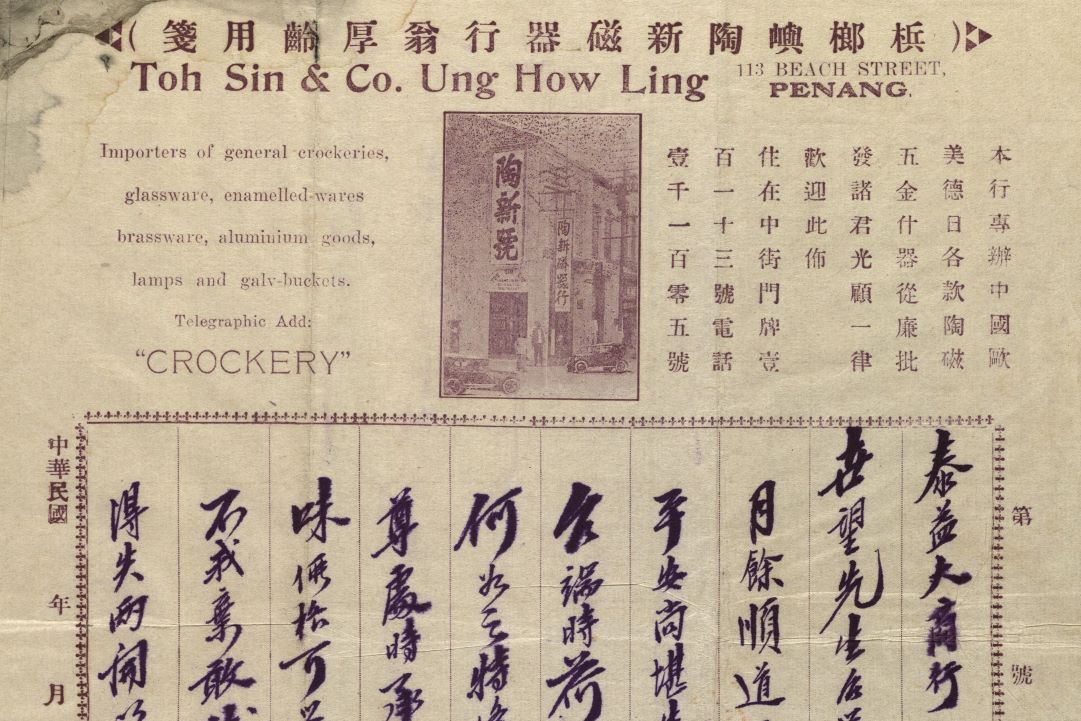 (梹榔嶼陶新磁器行翁厚齡用箋)
Toh Sin & Co. Ung How Ling
113 BEACH STREET,
PENANG.
Importers of general crockeries,
glassware, enamelled-wares
brassware, aluminium goods,
lamps and galv-buckets.
Telegraphic Add:
"CROCKERY"
陶新號
陶新磁器行
本行專辦中國歐
美德日各款陶磁
五金什器從廉批
發諸君光顧一律
歡迎此佈
住在中街門牌壹
百一十三號電話
壹千一百零五號
第 號
泰益大商行
世望先生台
月餘順道
平安尚堪
台端時荷
何如之特
尊處時承
味俱 可
不我棄敢
得失兩
中華民國 年 月